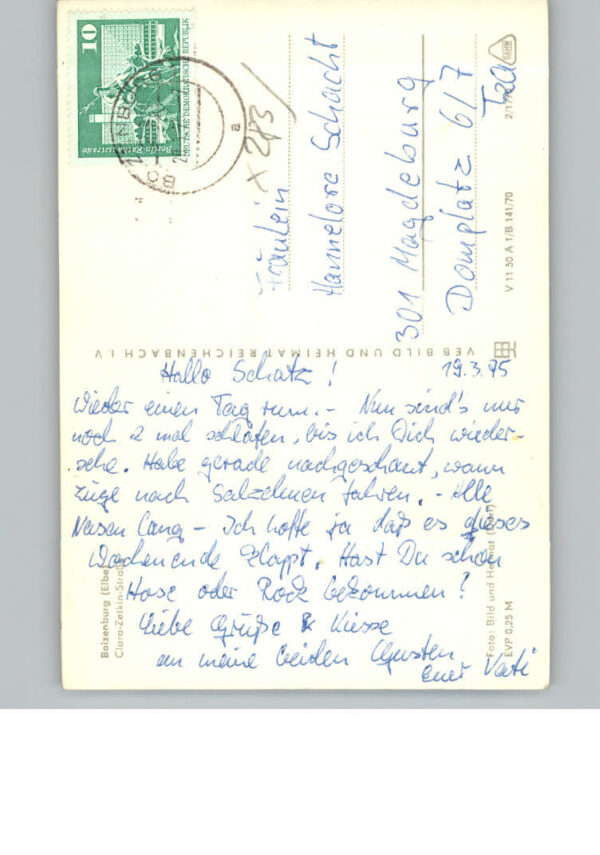 Hallo Schatz! 19.3.75
Wieder einen Tag rum. - Nun sind's nur
noch 2 mal schlafen, bis ich Dich wieder-
sehe. Habe gerade nachgeschaut, wann
Züge nach Salzelmen fahren. - Alle
Nasen lang - Ich hoffe ja daß es dieses
Wochenende klappt. Hast Du schon
Hose oder Rock bekommen?
Liebe Grüße & Küsse
an meine beiden
euer Vati
Fräulein
Hannelore Schacht
301 Magdeburg
Domplatz 6/7
x 213/
10
DEUTSCHE DEMOKRATISCHE REPUBLIK
Berlin-Rathausstraße
VEB BILD UND HEIMAT REICHENBACH I. V
V 11 50 A 1/B 141/70
Boizenburg (Elbe)
Clara-Zetkin-Straße
Foto: Bild und Heimat
EVP 0,25 M